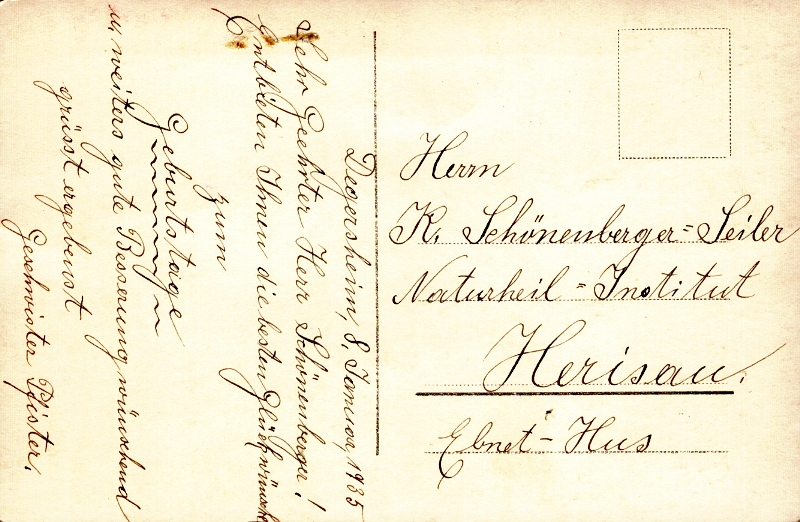 Degersheim, 8. Januar 1935
Sehr Geehrter Herr Schönenberger!
Entbieten Ihnen die besten Glückwünsche
zum
Geburtstage
u. weiters gute Besserung wünschend
grüsst ergebenst
Geschwister Pfister.
Herrn
K. Schönenberger=Seiler
Naturheil=Institut
Herisau.
Ebnet-Hus